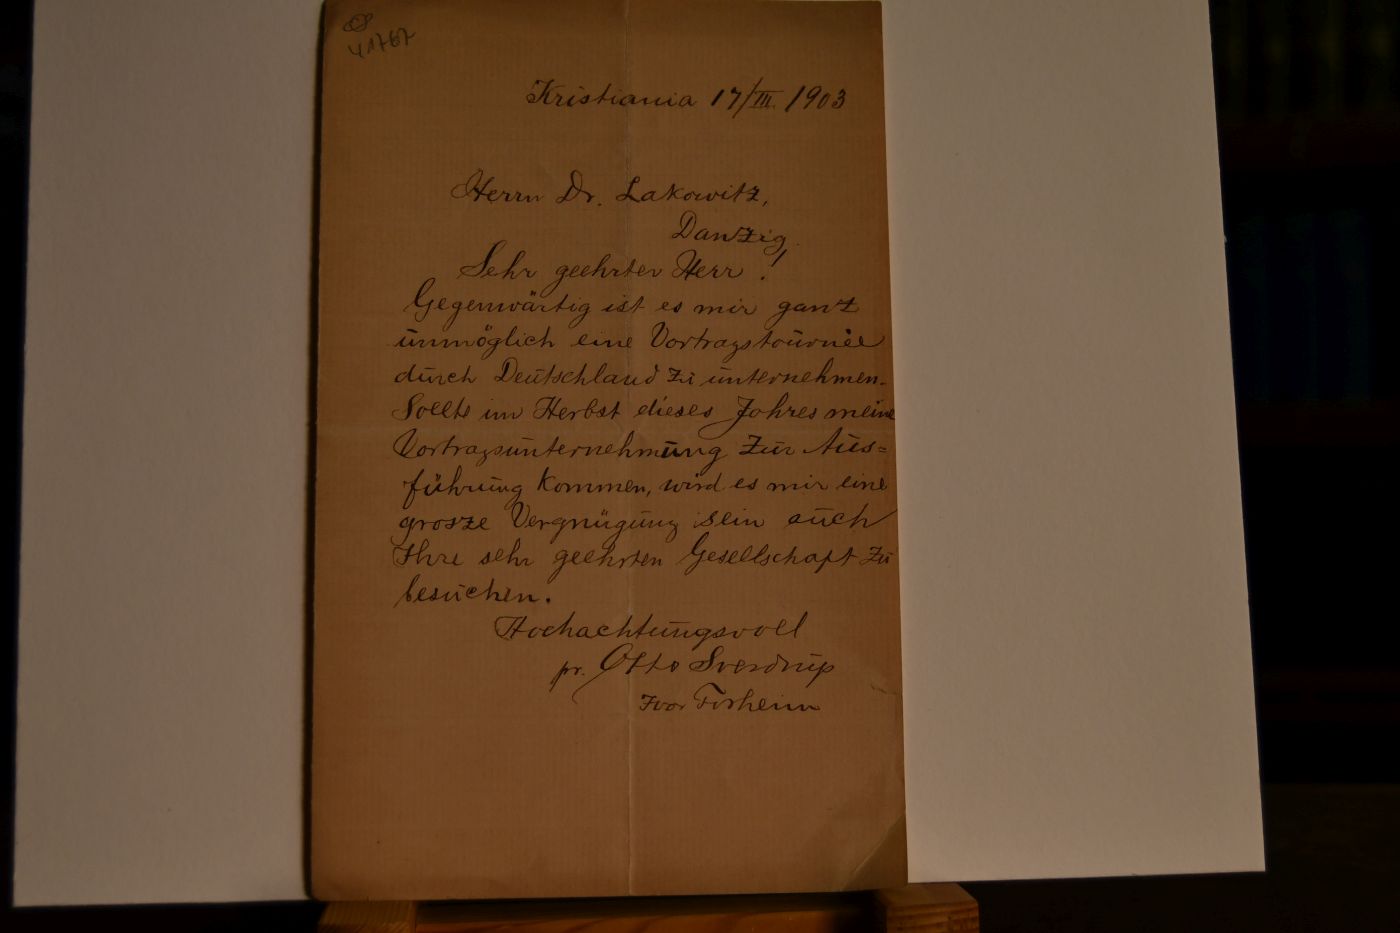 41767
Kristiania 17/III. 1903
Herrn Dr. Lakowitz,
Danzig.
Sehr geehrter Herr!
Gegenwärtig ist es mir ganz
unmöglich eine Vortragstournée
durch Deutschland zu unternehmen.
Sollte im Herbst dieses Jahres meine
Vortragsunternehmung zur Aus=
führung kommen, wird es mir eine
grosze Vergnügung sein auch
Ihre sehr geehrten Gesellschaft zu
besuchen.
Hochachtungsvoll
pr. Otto Sverdrup
Ivar